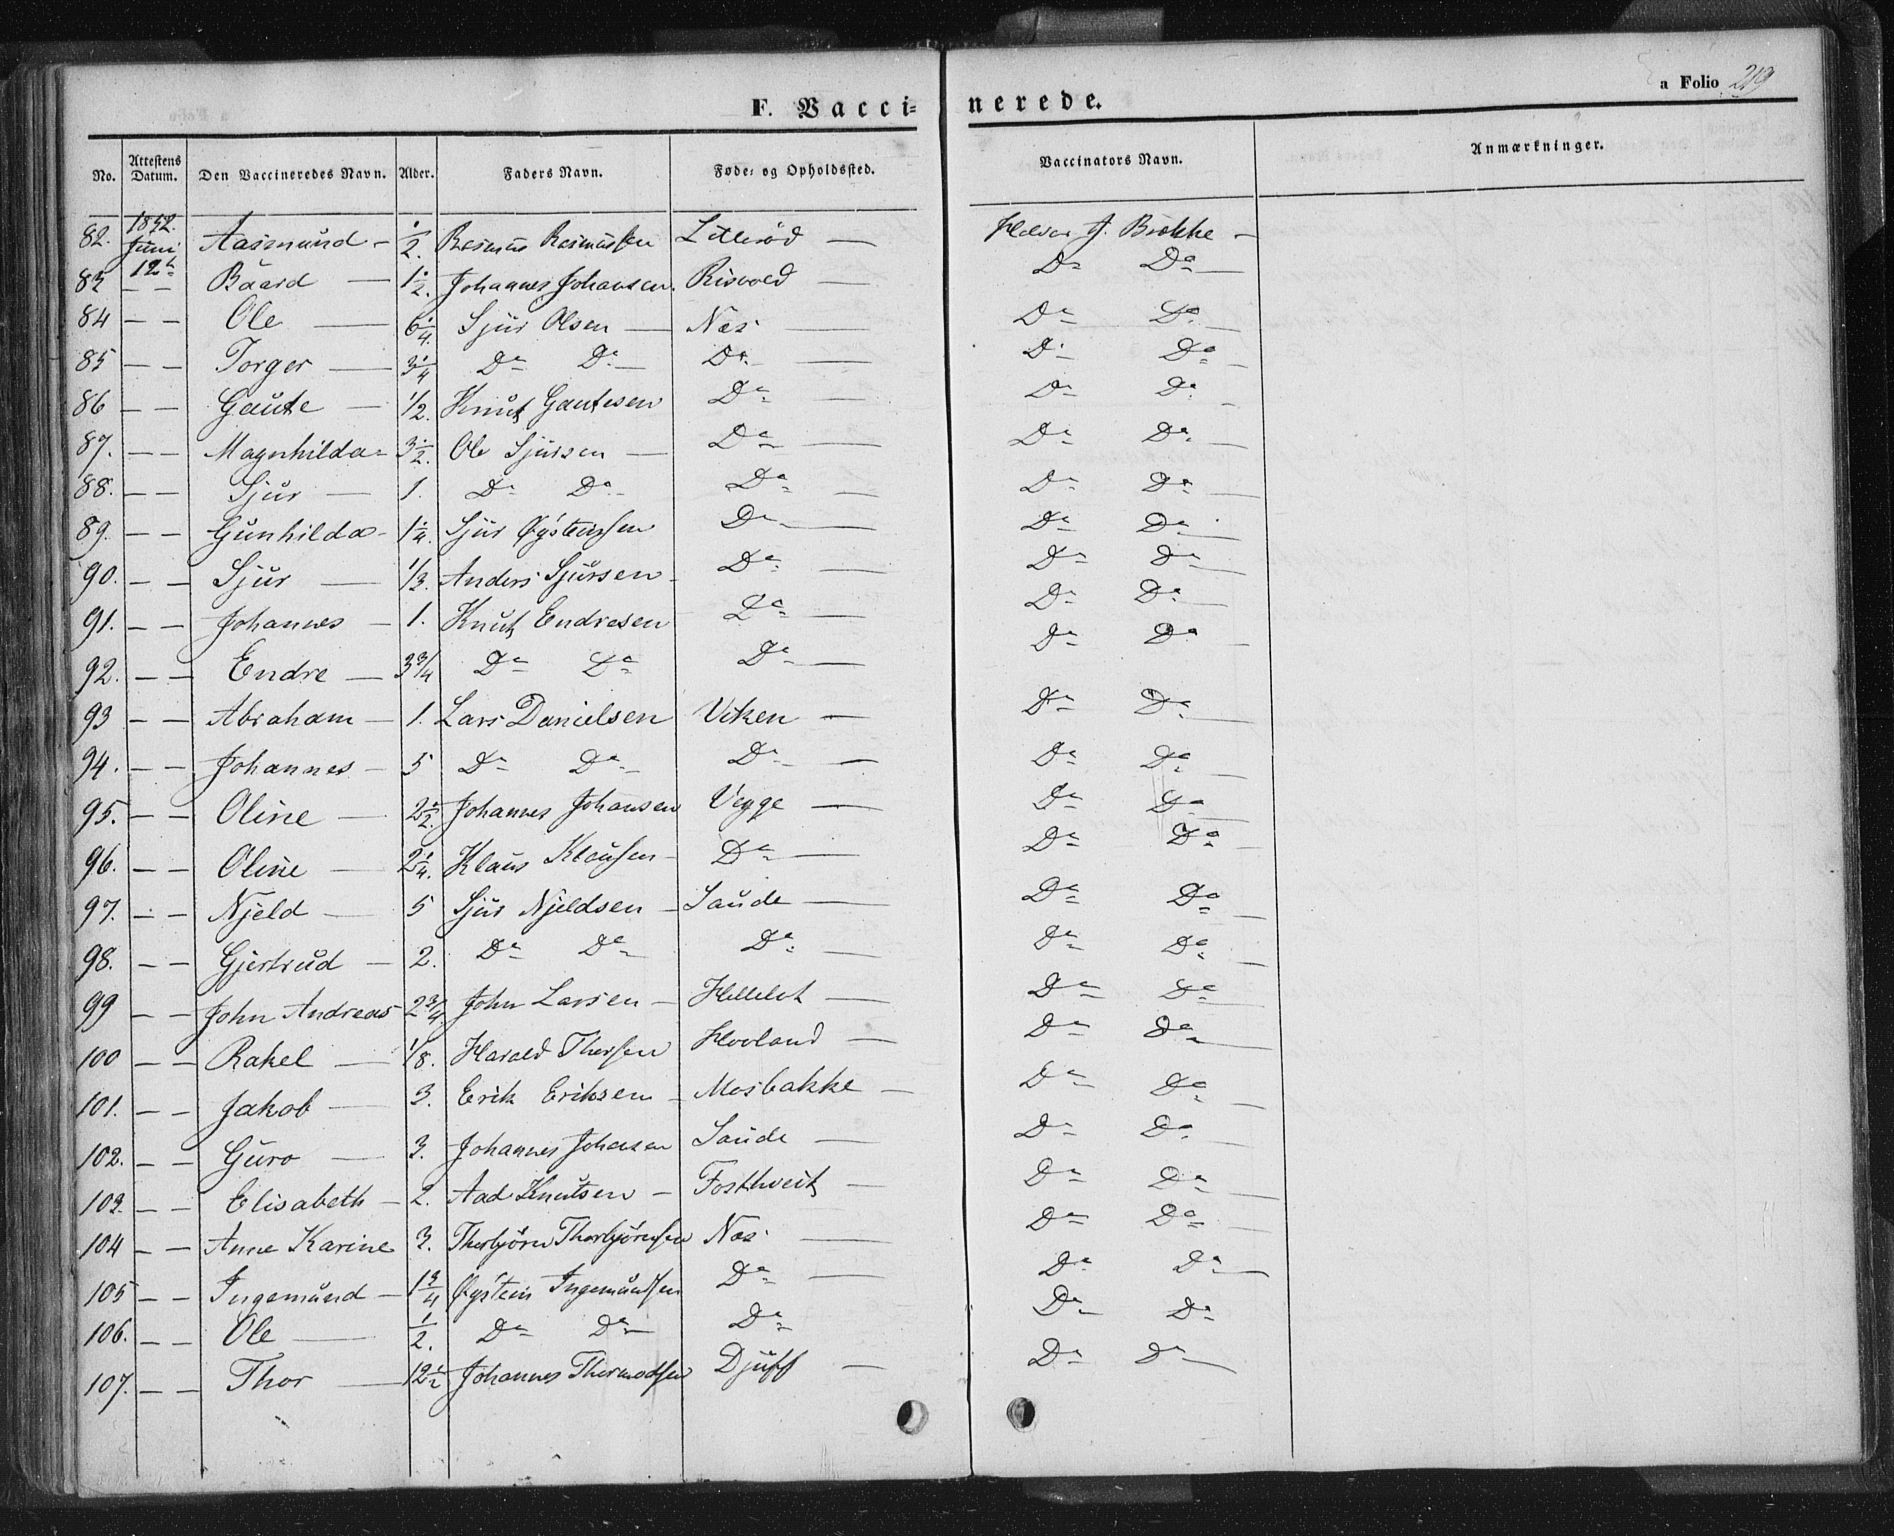 a Folio 219
F. Vaccinerede.
No. | Attestens Datum. | Den Vaccineredes Navn. | Alder. | Faders Navn. | Føde- og Opholdssted. | Vaccinators Navn. | Anmærkninger.
82. | 1852. Juni 12te | Aasmund — | 1/2. | Rasmus Rasmussen | — | J. Brokke —
83 | — — | Baard — | 1 1/2. | Johannes Johansen. | Risvold — | Do Do —
84 | — — | Ole — | 6 1/4. | Sjur Olsen — | Næs — | Do Do —
85 | — — | Torger — | 3 1/4 | Do Do — | Do — | Do Do —
86 | — — | Gaute — | 1/2. | Knut Gautesen | Do — | Do Do —
87. | — — | Magnhilda — | 3 1/2. | Ole Sjursen — | Do — | Do Do —
88. | — — | Sjur — | 1. | Do Do — | Do — | Do Do —
89. | — — | Gunhilda — | 1 1/4. | Sjur Øysteinssen | Do — | Do Do —
90. | — — | Sjur — | 1/3. | Anders Sjursen — | Do — | Do Do —
91. | — — | Johannes — | 1. | Knut Endresen | Do — | Do Do —
92. | — — | Endre — | 3 3/4 | Do Do | Do — | Do Do —
93 | — — | Abraham — | 1. | Lars Danielsen | Viken — | Do Do —
94. | — — | Johannes — | 5 | Do Do — | Do — | Do Do —
95. | — — | Oline — | 2 1/2. | Johannes Johansen | Vegge — | Do Do —
96. | — — | Oline — | 2 1/4. | Klaus Klausen — | Do — | Do Do —
97. | — — | Njeld — | 5 | Sjur Njeldsen — | Saude — | Do Do —
98. | — — | Gjertrud — | 2. | Do Do — | Do — | Do Do —
99 | — — | John Andreas | 2 3/4 | John Larsen — | — | Do Do —
100 | — — | Rakel — | 1/8. | Harald Thorsen | Hovland — | Do Do —
101. | — — | Jakob — | 3. | Erik Eriksen — | Mosbakke — | Do Do —
102. | — — | Guro — | 3. | Johannes Johansen | Saude — | Do Do —
103. | — — | Elisabeth — | 2. | Aad Knutsen — | Fosthveit — | Do Do —
104 | — — | Anne Karine | 3. | Thorbjørn Thorbjørnsen | Næs — | Do Do —
105 | — — | Ingemund — | 1 3/4 | Øystein Ingemundsen | Do — | Do Do —
106. | — — | Ole — | 1/2. | Do Do — | Do | Do Do
107. | — — | Thor — | 12 1/2 | Johannes Thormodsen | Djuff — | Do Do —